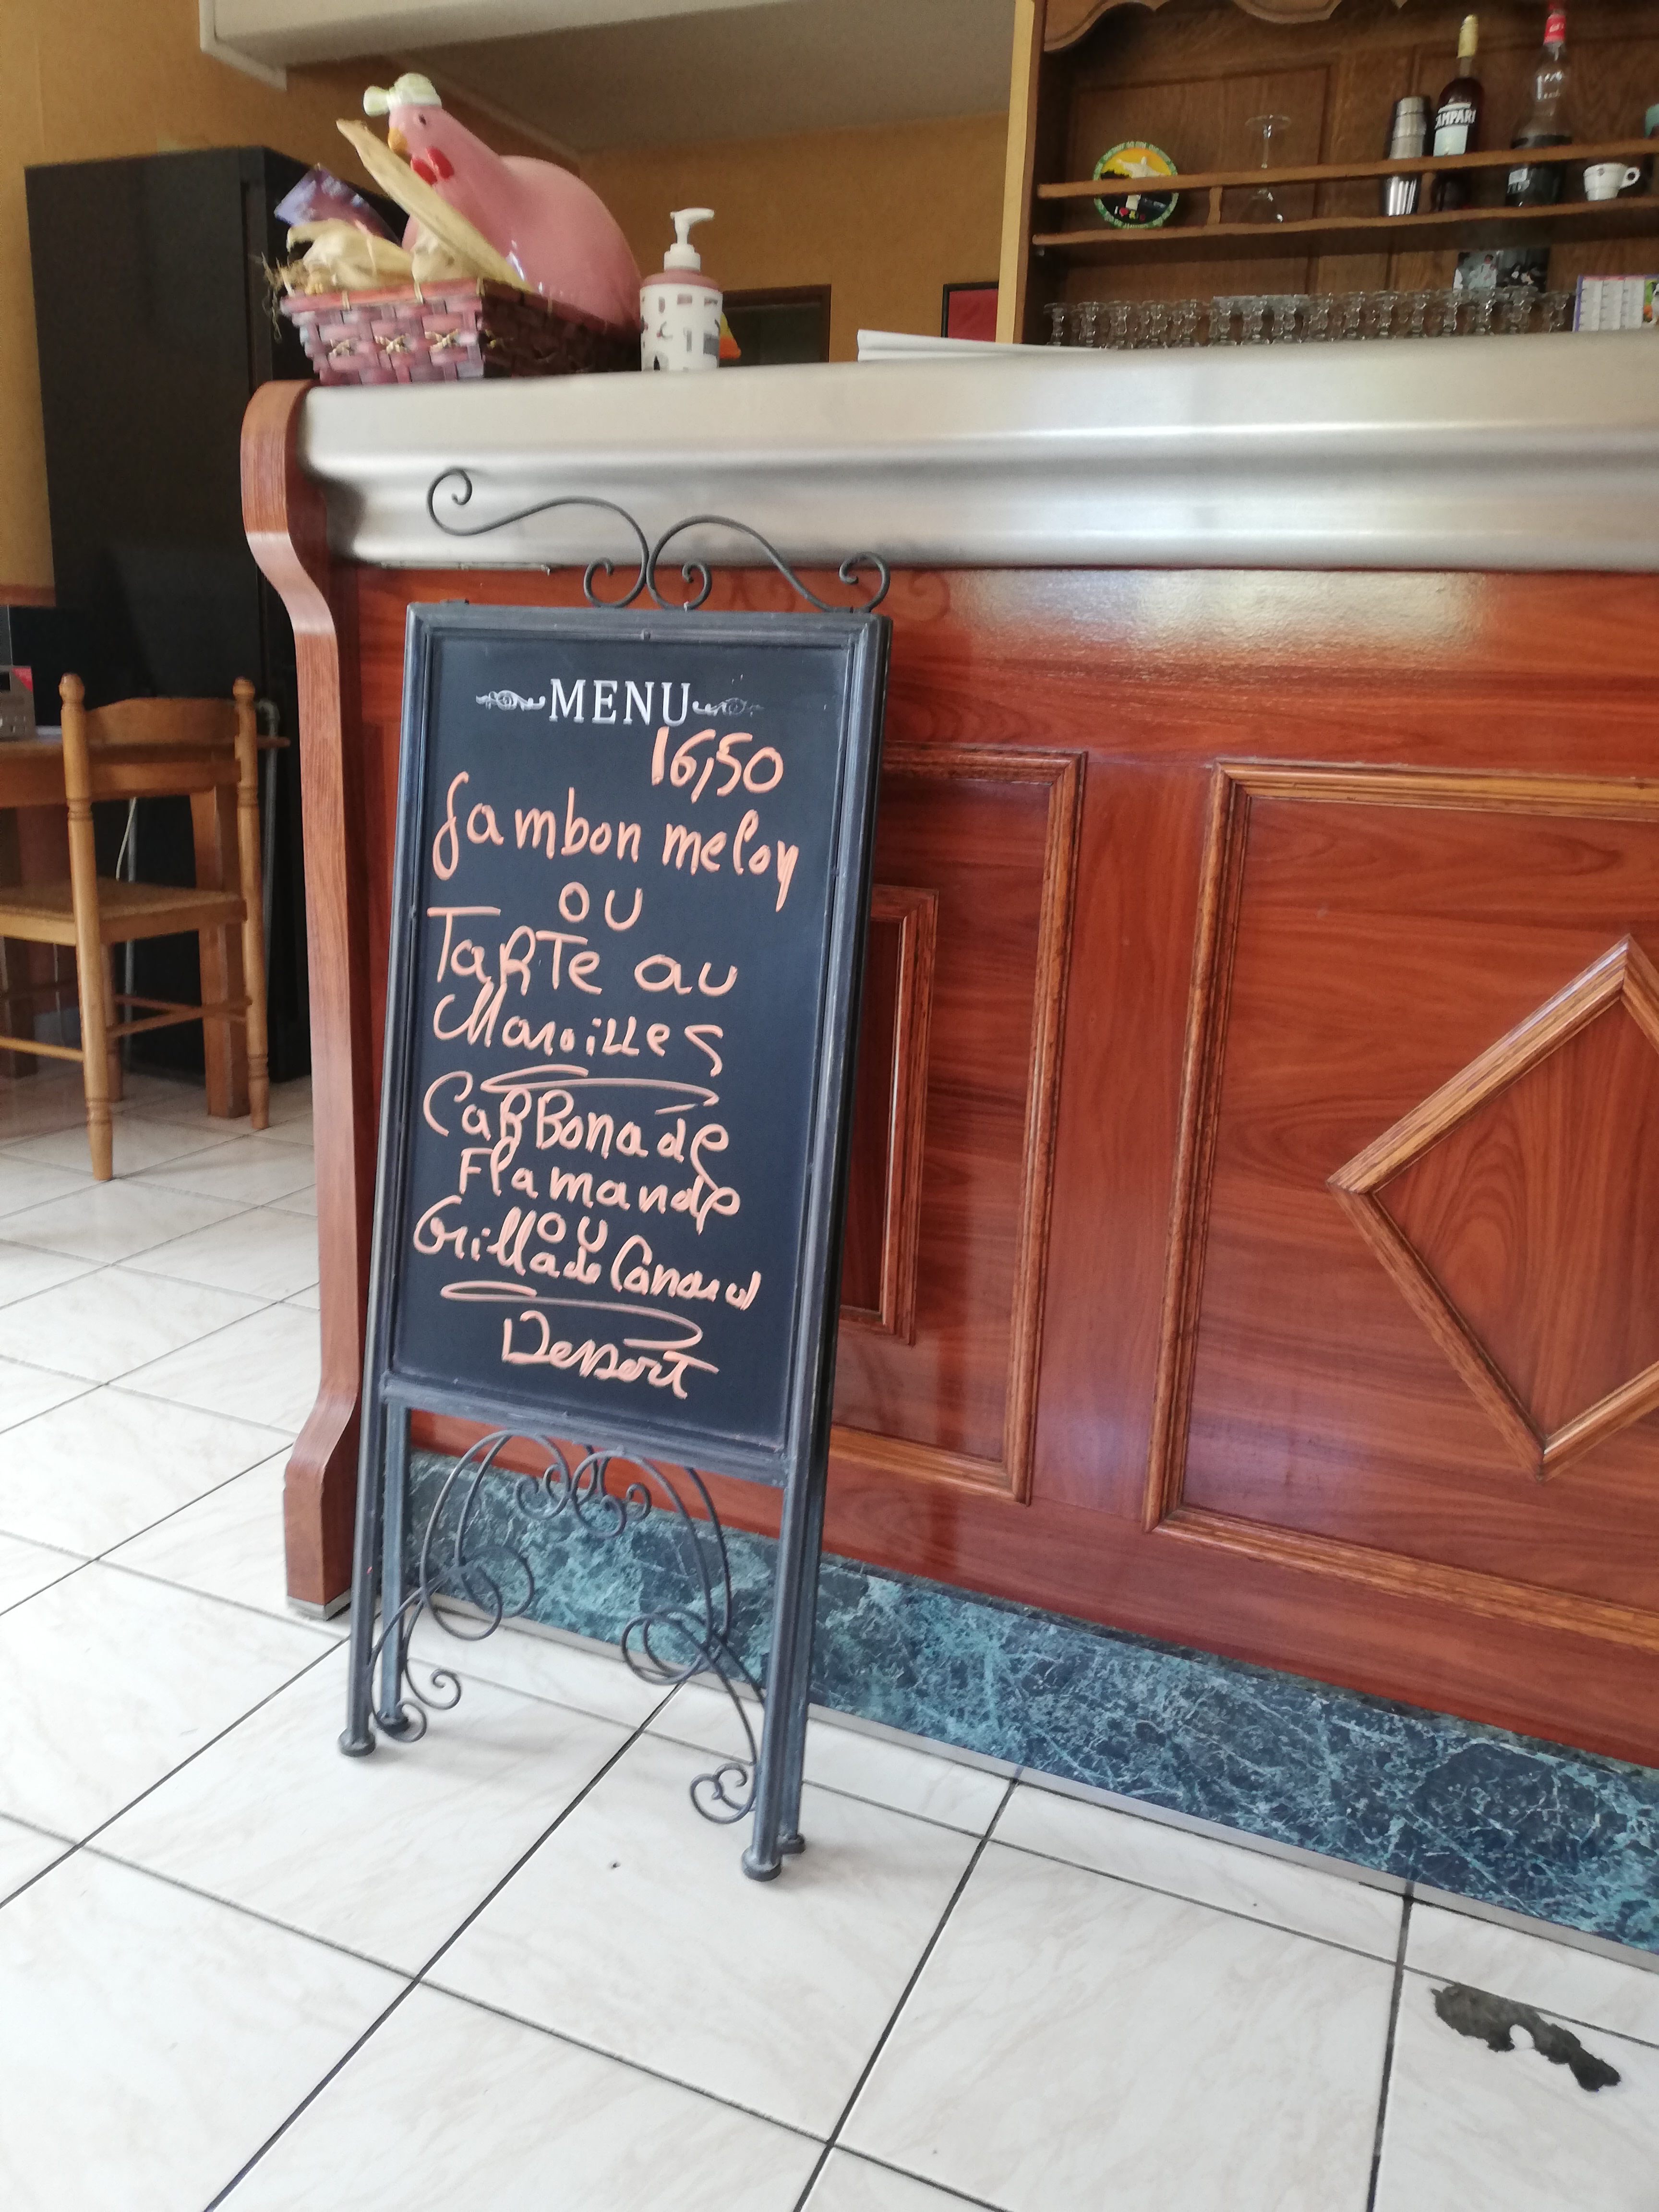 CAMPARI
MENU
16,50
Jambon melon
ou
Tarte au
Maroilles
Carbonade
Flamande
ou
Grillade Canard
Dessert